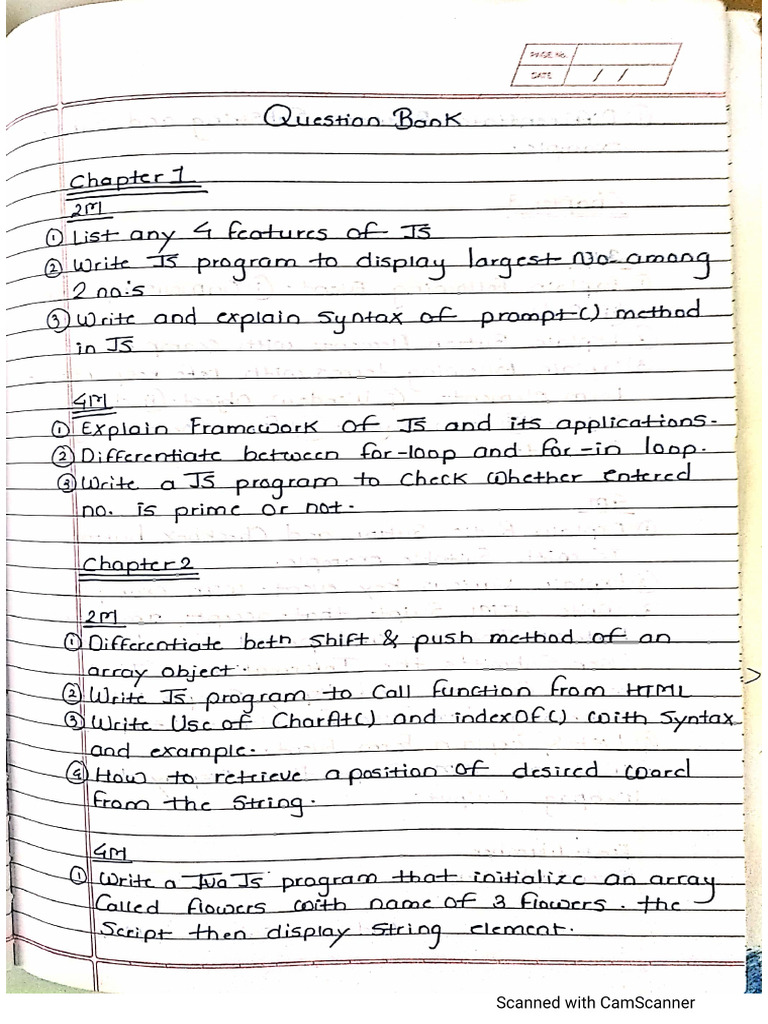 PAGE No.
DATE / /
Question Bank
Chapter 1
2M
① List any 4 features of JS
② Write JS program to display largest No. among
2 no's
③ Write and explain syntax of prompt() method
in JS
4M
① Explain Framework of JS and its applications.
② Differentiate between for-loop and for-in loop.
③ Write a JS program to check whether entered
no. is prime or not.
Chapter 2
2M
① Differentiate betn shift & push method of an
array object.
② Write JS program to call function from HTML
③ Write Use of CharAt() and indexOf() with syntax
and example.
④ How to retrieve a position of desired word
from the string.
4M
① Write a JS program that initialize an array
called flowers with name of 3 flowers. the
script then display string element.
Scanned with CamScanner